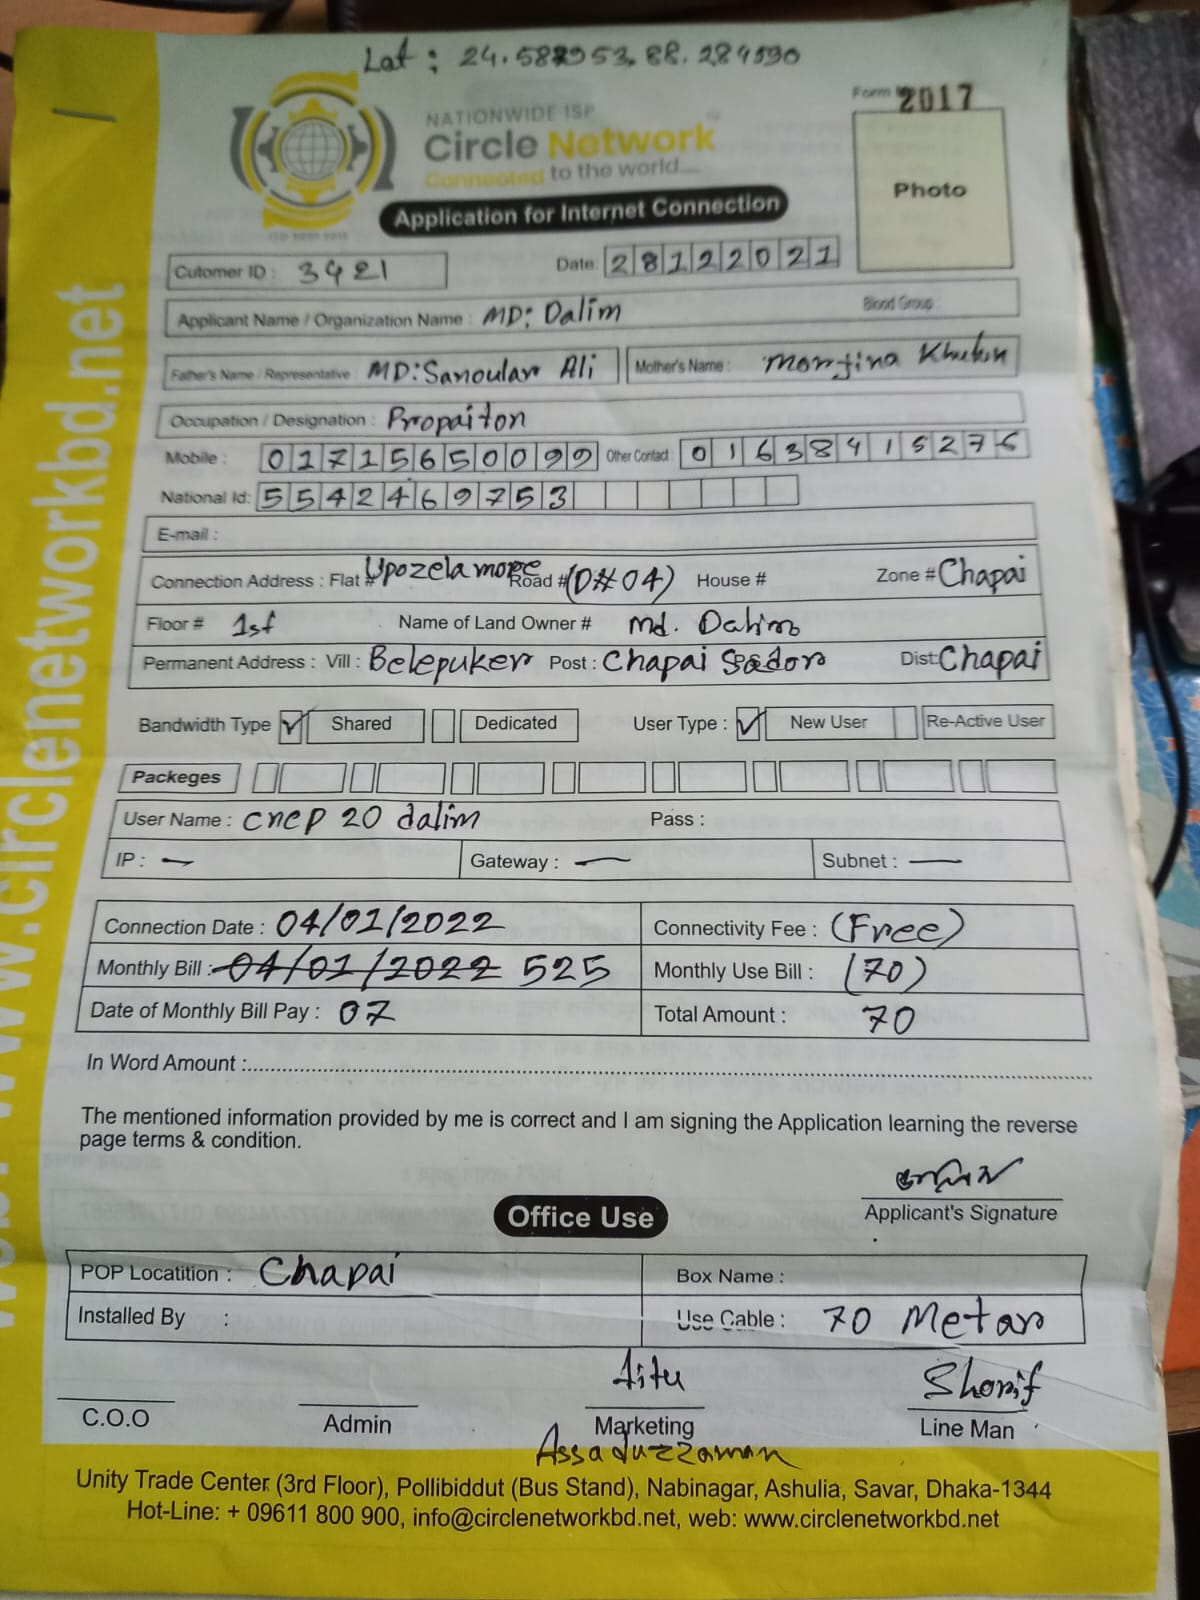 Lat: 24.587953, 88.284590
Form 2017
NATIONWIDE ISP
Circle Network
Connected to the world
Photo
Application for Internet Connection
Cutomer ID : 3421 Date: 28122021
Applicant Name / Organization Name : MD: Dalim Blood Group :
Father's Name / Representative : MD: Sanoular Ali Mother's Name : Monjina
Occupation / Designation : Propaiton
Mobile : 01715650099 Other Contact : 01638415276
National Id: 5542469753
E-mail :
Connection Address : Flat # Upozela more Road # (D#04) House # Zone # Chapai
Floor # 1st Name of Land Owner # Md. Dalim
Permanent Address : Vill : Belepuker Post : Chapai Sador Dist: Chapai
Bandwidth Type ✓ Shared Dedicated User Type : ✓ New User Re-Active User
Packeges
User Name : cnep 20 dalim Pass :
IP : — Gateway : — Subnet : —
Connection Date : 04/01/2022 Connectivity Fee : (Free)
Monthly Bill : 04/01/2022 525 Monthly Use Bill : (70)
Date of Monthly Bill Pay : 07 Total Amount : 70
In Word Amount :
The mentioned information provided by me is correct and I am signing the Application learning the reverse
page terms & condition.
ডালিম
Applicant's Signature
Office Use
POP Locatition : Chapai Box Name :
Installed By : Use Cable : 70 Metar
Sharif
C.O.O Admin Marketing Line Man
Assaduzzaman
Unity Trade Center (3rd Floor), Pollibiddut (Bus Stand), Nabinagar, Ashulia, Savar, Dhaka-1344
Hot-Line: + 09611 800 900, info@circlenetworkbd.net, web: www.circlenetworkbd.net
www.circlenetworkbd.net